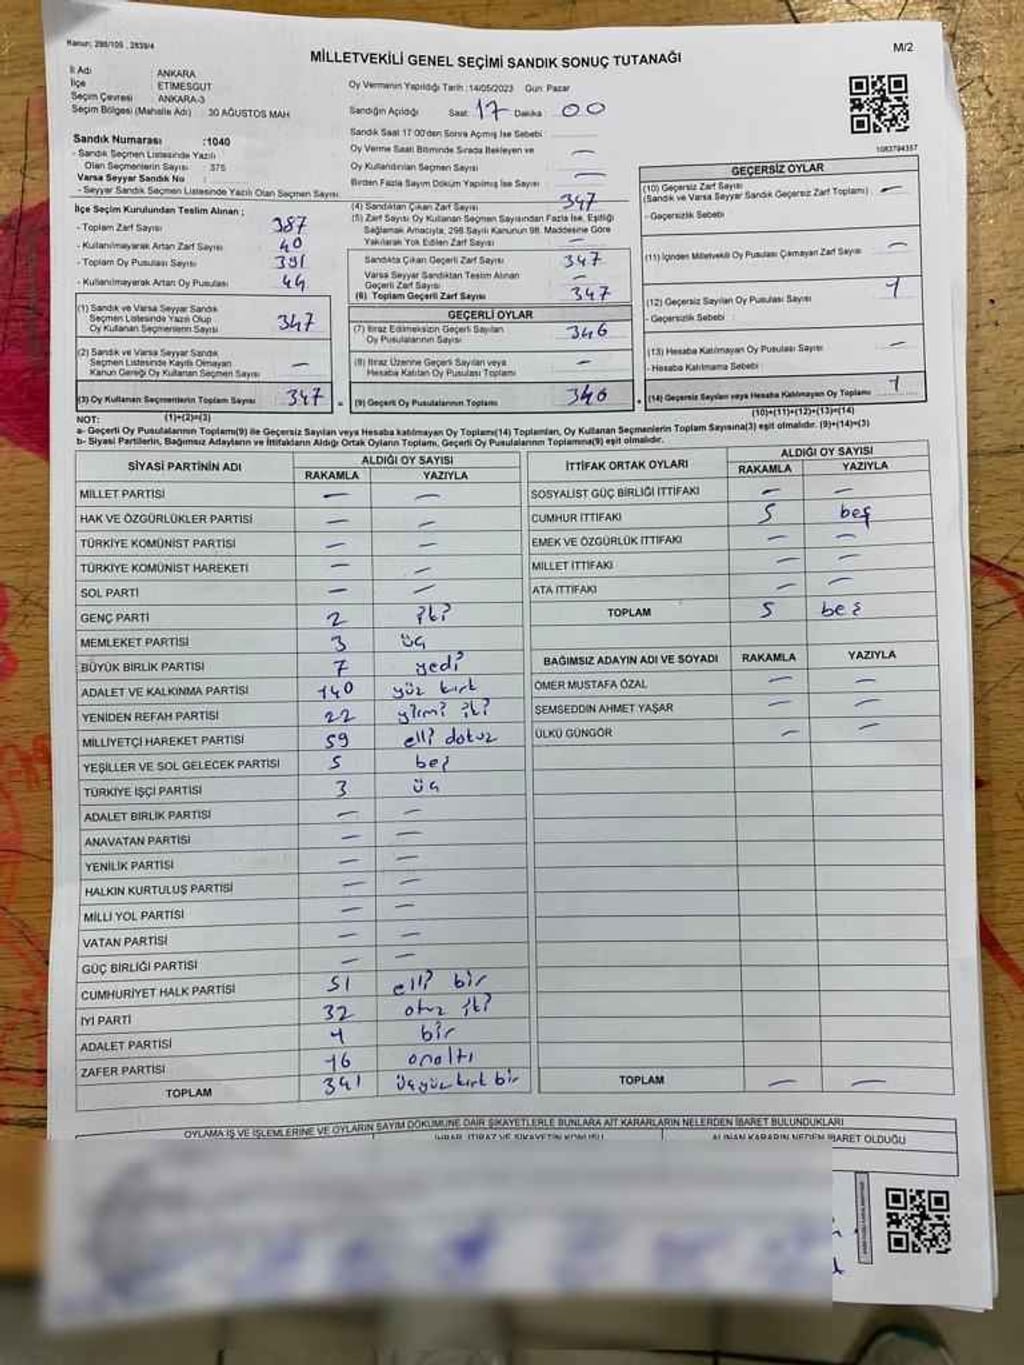 Kanun: 298/105, 2839/4
M/2
MİLLETVEKİLİ GENEL SEÇİMİ SANDIK SONUÇ TUTANAĞI
İl Adı : ANKARA
İlçe : ETİMESGUT
Seçim Çevresi : ANKARA-3
Seçim Bölgesi (Mahalle Adı) : 30 AĞUSTOS MAH
Oy Vermenin Yapıldığı Tarih :14/05/2023 Gün: Pazar
Sandığın Açıldığı Saat: 17 Dakika : 00
Sandık Saat 17:00'den Sonra Açmış İse Sebebi :
Oy Verme Saati Bitiminde Sırada Bekleyen ve
Oy Kullandırılan Seçmen Sayısı —
Birden Fazla Sayım Döküm Yapılmış İse Sayısı : —
Sandık Numarası :1040
- Sandık Seçmen Listesinde Yazılı
Olan Seçmenlerin Sayısı : 375
Varsa Seyyar Sandık No :
- Seyyar Sandık Seçmen Listesinde Yazılı Olan Seçmen Sayısı:
1083794357
İlçe Seçim Kurulundan Teslim Alınan ;
- Toplam Zarf Sayısı 387
- Kullanılmayarak Artan Zarf Sayısı 40
- Toplam Oy Pusulası Sayısı 391
- Kullanılmayarak Artan Oy Pusulası 44
(1) Sandık ve Varsa Seyyar Sandık
Seçmen Listesinde Yazılı Olup
Oy Kullanan Seçmenlerin Sayısı 347
(2) Sandık ve Varsa Seyyar Sandık
Seçmen Listesinde Kayıtlı Olmayan
Kanun Gereği Oy Kullanan Seçmen Sayısı —
(3) Oy Kullanan Seçmenlerin Toplam Sayısı 347
(1)+(2)=(3)
(4) Sandıktan Çıkan Zarf Sayısı 347
(5) Zarf Sayısı Oy Kullanan Seçmen Sayısından Fazla İse, Eşitliği
Sağlamak Amacıyla, 298 Sayılı Kanunun 98. Maddesine Göre
Yakılarak Yok Edilen Zarf Sayısı —
Sandıkta Çıkan Geçerli Zarf Sayısı 347
Varsa Seyyar Sandıktan Teslim Alınan
Geçerli Zarf Sayısı —
(6) Toplam Geçerli Zarf Sayısı 347
GEÇERLİ OYLAR
(7) İtiraz Edilmeksizin Geçerli Sayılan
Oy Pusulalarının Sayısı 346
(8) İtiraz Üzerine Geçerli Sayılan veya
Hesaba Katılan Oy Pusulası Toplamı —
(9) Geçerli Oy Pusulalarının Toplamı 346
GEÇERSİZ OYLAR
(10) Geçersiz Zarf Sayısı
(Sandık ve Varsa Seyyar Sandık Geçersiz Zarf Toplamı) —
- Geçersizlik Sebebi :
(11) İçinden Milletvekili Oy Pusulası Çıkmayan Zarf Sayısı —
(12) Geçersiz Sayılan Oy Pusulası Sayısı 1
- Geçersizlik Sebebi :
(13) Hesaba Katılmayan Oy Pusulası Sayısı —
- Hesaba Katılmama Sebebi :
(14) Geçersiz Sayılan veya Hesaba Katılmayan Oy Toplamı 1
(10)+(11)+(12)+(13)=(14)
NOT:
a- Geçerli Oy Pusulalarının Toplamı(9) ile Geçersiz Sayılan veya Hesaba katılmayan Oy Toplamı(14) Toplamları, Oy Kullanan Seçmenlerin Toplam Sayısına(3) eşit olmalıdır. (9)+(14)=(3)
b- Siyasi Partilerin, Bağımsız Adayların ve İttifakların Aldığı Ortak Oyların Toplamı, Geçerli Oy Pusulalarının Toplamına(9) eşit olmalıdır.
SİYASİ PARTİNİN ADI ALDIĞI OY SAYISI
RAKAMLA YAZIYLA
MİLLET PARTİSİ — —
HAK VE ÖZGÜRLÜKLER PARTİSİ — —
TÜRKİYE KOMÜNİST PARTİSİ — —
TÜRKİYE KOMÜNİST HAREKETİ — —
SOL PARTİ — —
GENÇ PARTİ 2 iki
MEMLEKET PARTİSİ 3 üç
BÜYÜK BİRLİK PARTİSİ 7 yedi
ADALET VE KALKINMA PARTİSİ 140 yüz kırk
YENİDEN REFAH PARTİSİ 22 yirmi iki
MİLLİYETÇİ HAREKET PARTİSİ 59 elli dokuz
YEŞİLLER VE SOL GELECEK PARTİSİ 5 beş
TÜRKİYE İŞÇİ PARTİSİ 3 üç
ADALET BİRLİK PARTİSİ — —
ANAVATAN PARTİSİ — —
YENİLİK PARTİSİ — —
HALKIN KURTULUŞ PARTİSİ — —
MİLLİ YOL PARTİSİ — —
VATAN PARTİSİ — —
GÜÇ BİRLİĞİ PARTİSİ — —
CUMHURİYET HALK PARTİSİ 51 elli bir
İYİ PARTİ 32 otuz iki
ADALET PARTİSİ 1 bir
ZAFER PARTİSİ 16 onaltı
TOPLAM 341 üçyüz kırk bir
İTTİFAK ORTAK OYLARI ALDIĞI OY SAYISI
RAKAMLA YAZIYLA
SOSYALİST GÜÇ BİRLİĞİ İTTİFAKI — —
CUMHUR İTTİFAKI 5 beş
EMEK VE ÖZGÜRLÜK İTTİFAKI — —
MİLLET İTTİFAKI — —
ATA İTTİFAKI — —
TOPLAM 5 beş
BAĞIMSIZ ADAYIN ADI VE SOYADI RAKAMLA YAZIYLA
ÖMER MUSTAFA ÖZAL — —
ŞEMSEDDİN AHMET YAŞAR — —
ÜLKÜ GÜNGÖR — —
TOPLAM — —
OYLAMA İŞ VE İŞLEMLERİNE VE OYLARIN SAYIM DÖKÜMÜNE DAİR ŞİKAYETLERLE BUNLARA AİT KARARLARIN NELERDEN İBARET BULUNDUKLARI
İHBAR, İTİRAZ VE ŞİKAYETİN KONUSU
ALINAN KARARIN NEDEN İBARET OLDUĞU